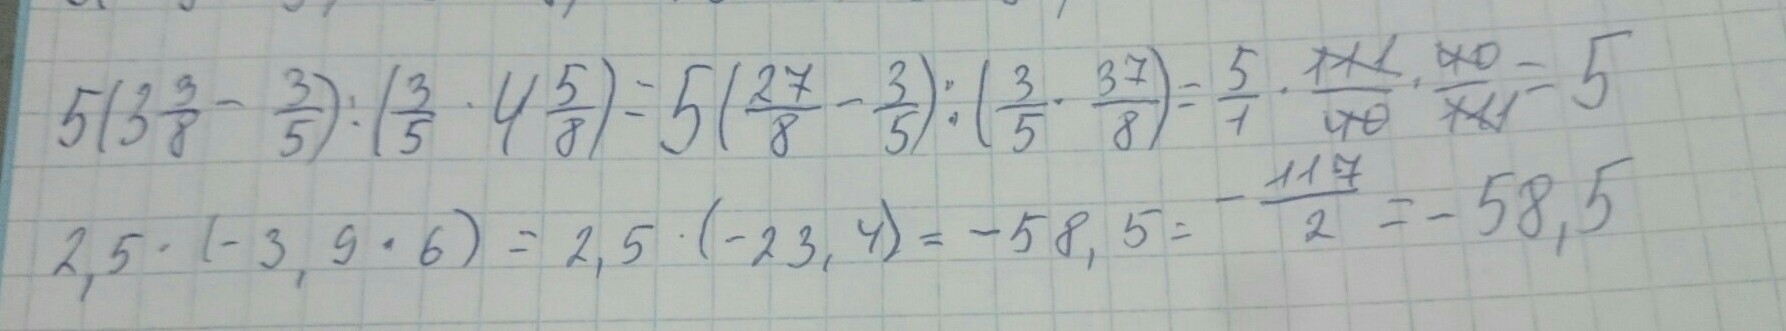 5(3 3/8 - 3/5):(3/5 · 4 5/8)=5(27/8 - 3/5):(3/5 · 37/8)= 5/1 · 111/40 · 40/111 = 5
2,5·(-3,9·6) = 2,5·(-23,4)= -58,5= - 117/2 = -58,5